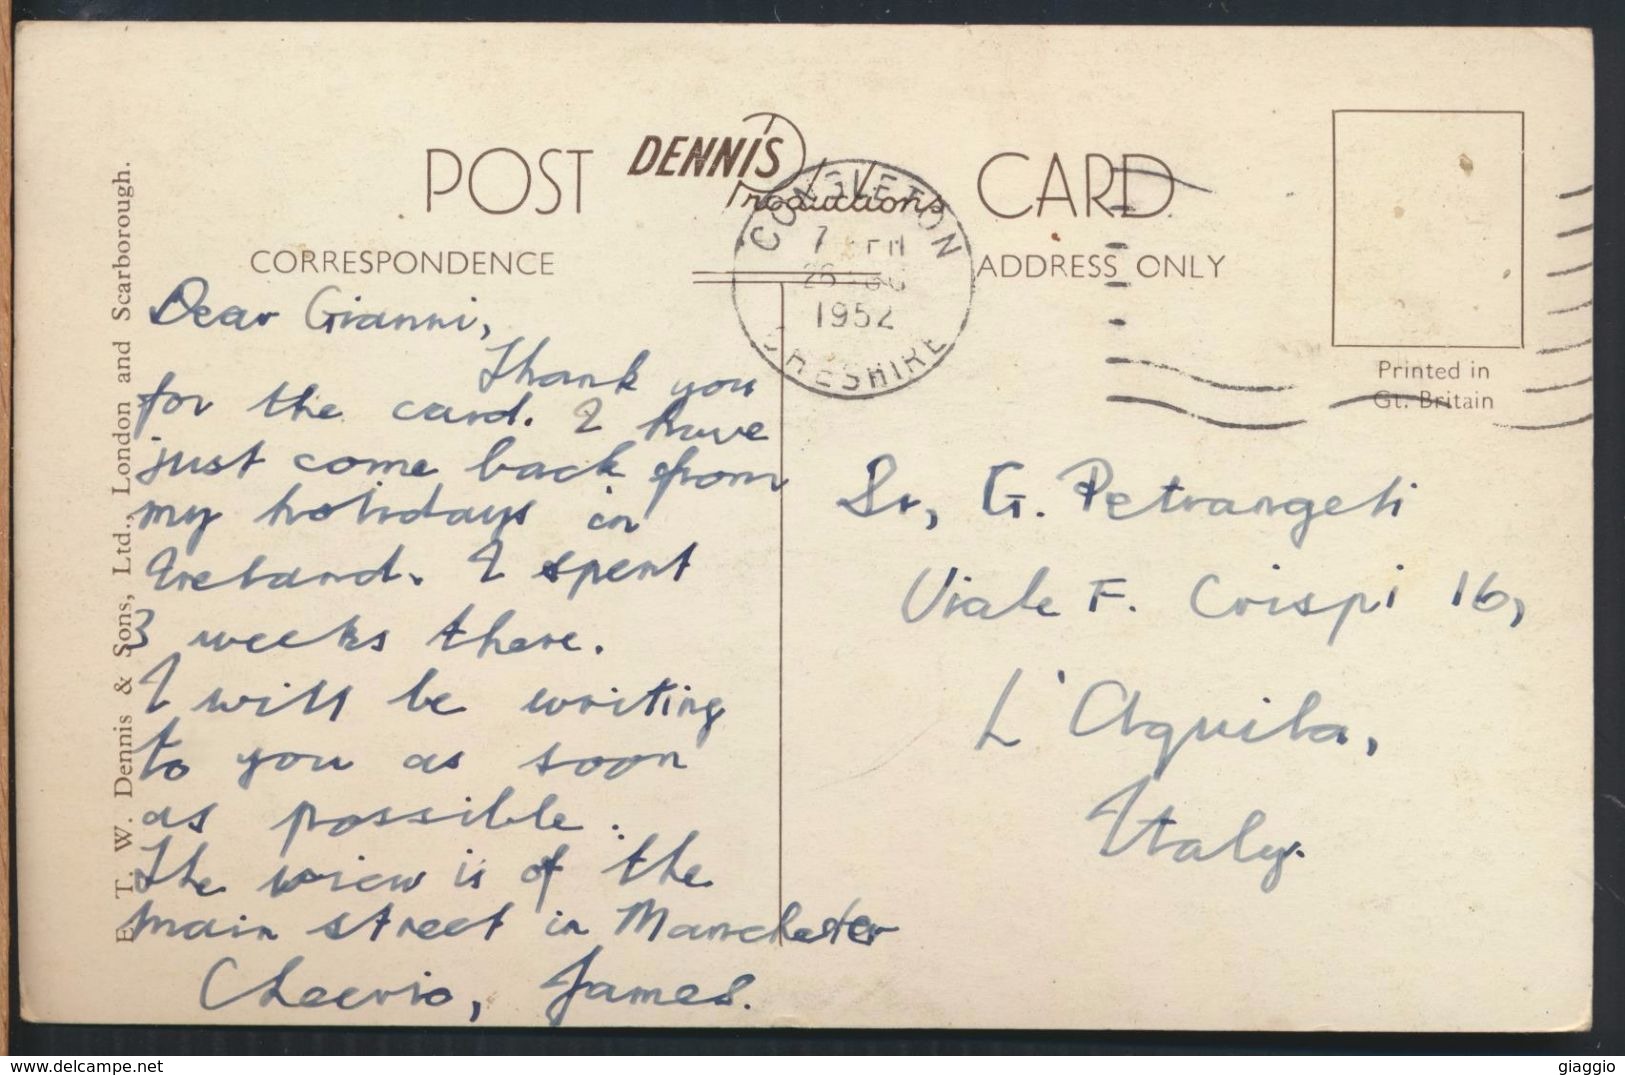 POST DENNIS Productions CARD
CORRESPONDENCE
ADDRESS ONLY
CONGLETON
CHESHIRE
7
1952
Printed in
Gt. Britain
E. T. W. Dennis & Sons, Ltd., London and Scarborough.
Dear Gianni,
Thank you
for the card. I have
just come back from
my holidays in
Ireland. I spent
3 weeks there.
I will be writing
to you as soon
as possible.
The view is of the
main street in Manchester
Cheerio, James.
Sr, G. Petrangeli
Viale F. Crispi 16,
L'Aquila,
Italy.
giaggio